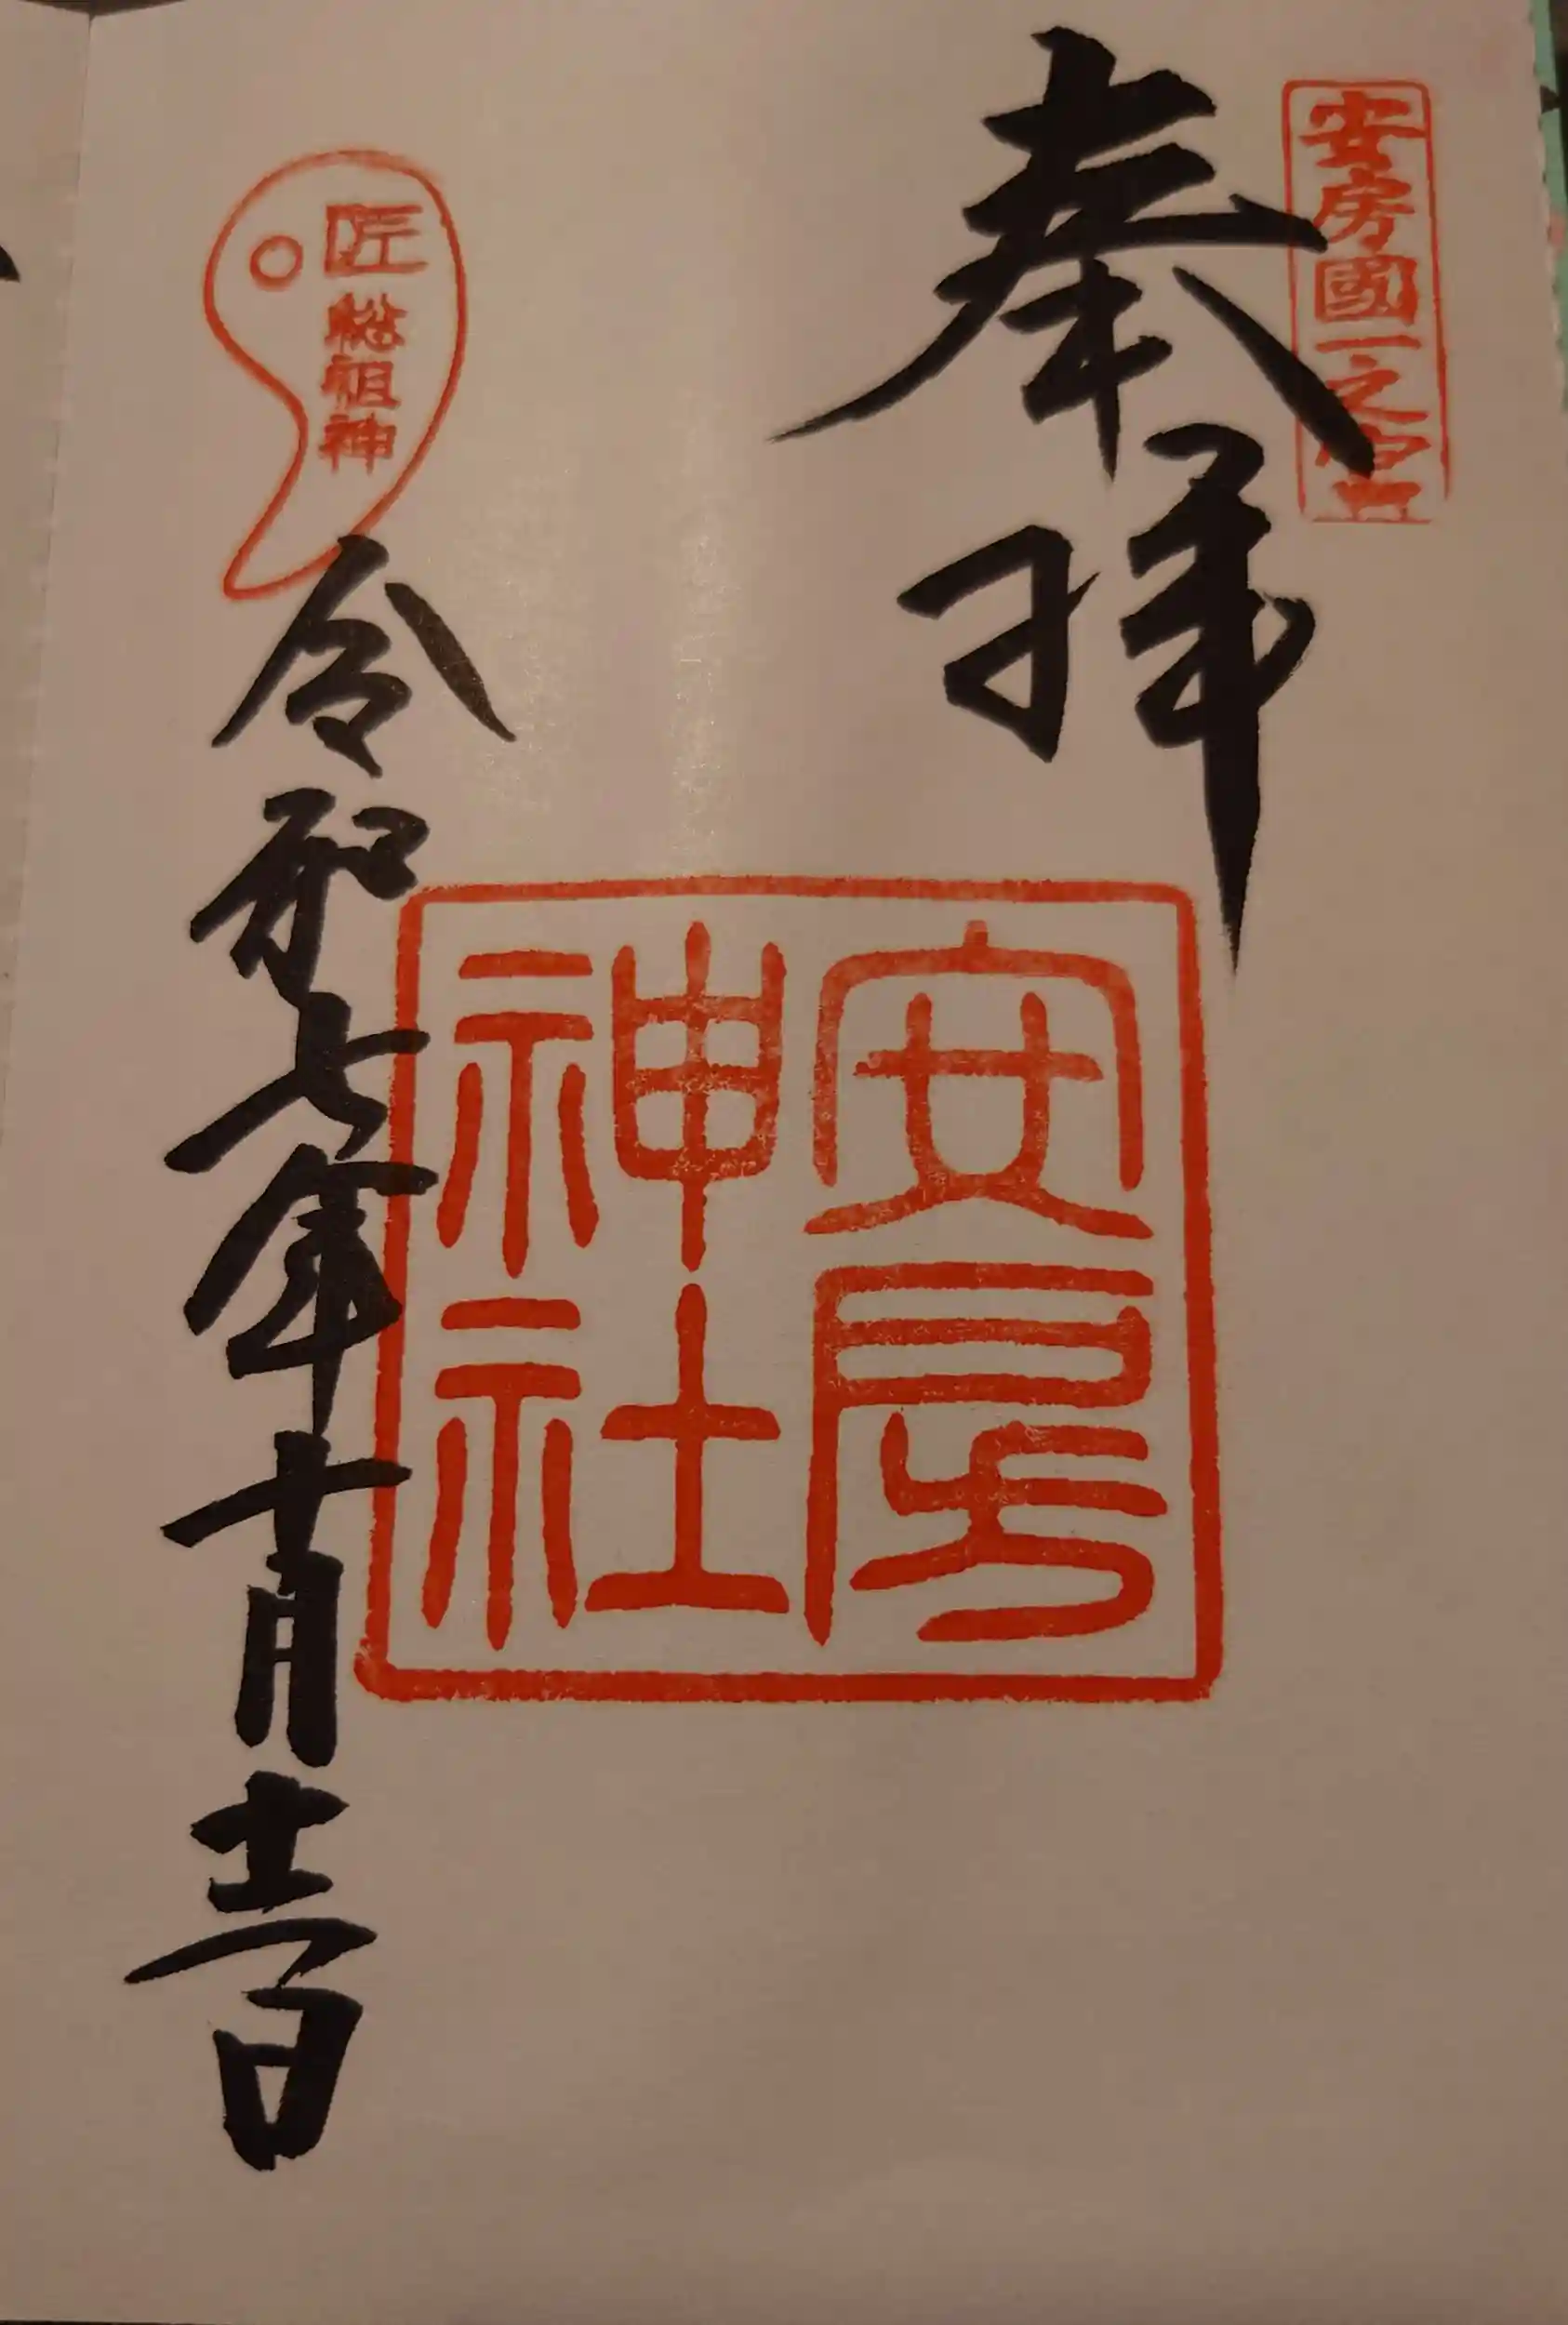 安房國一之宮
奉拝
安房
神社
匠総祖神
令和七年十月十二日